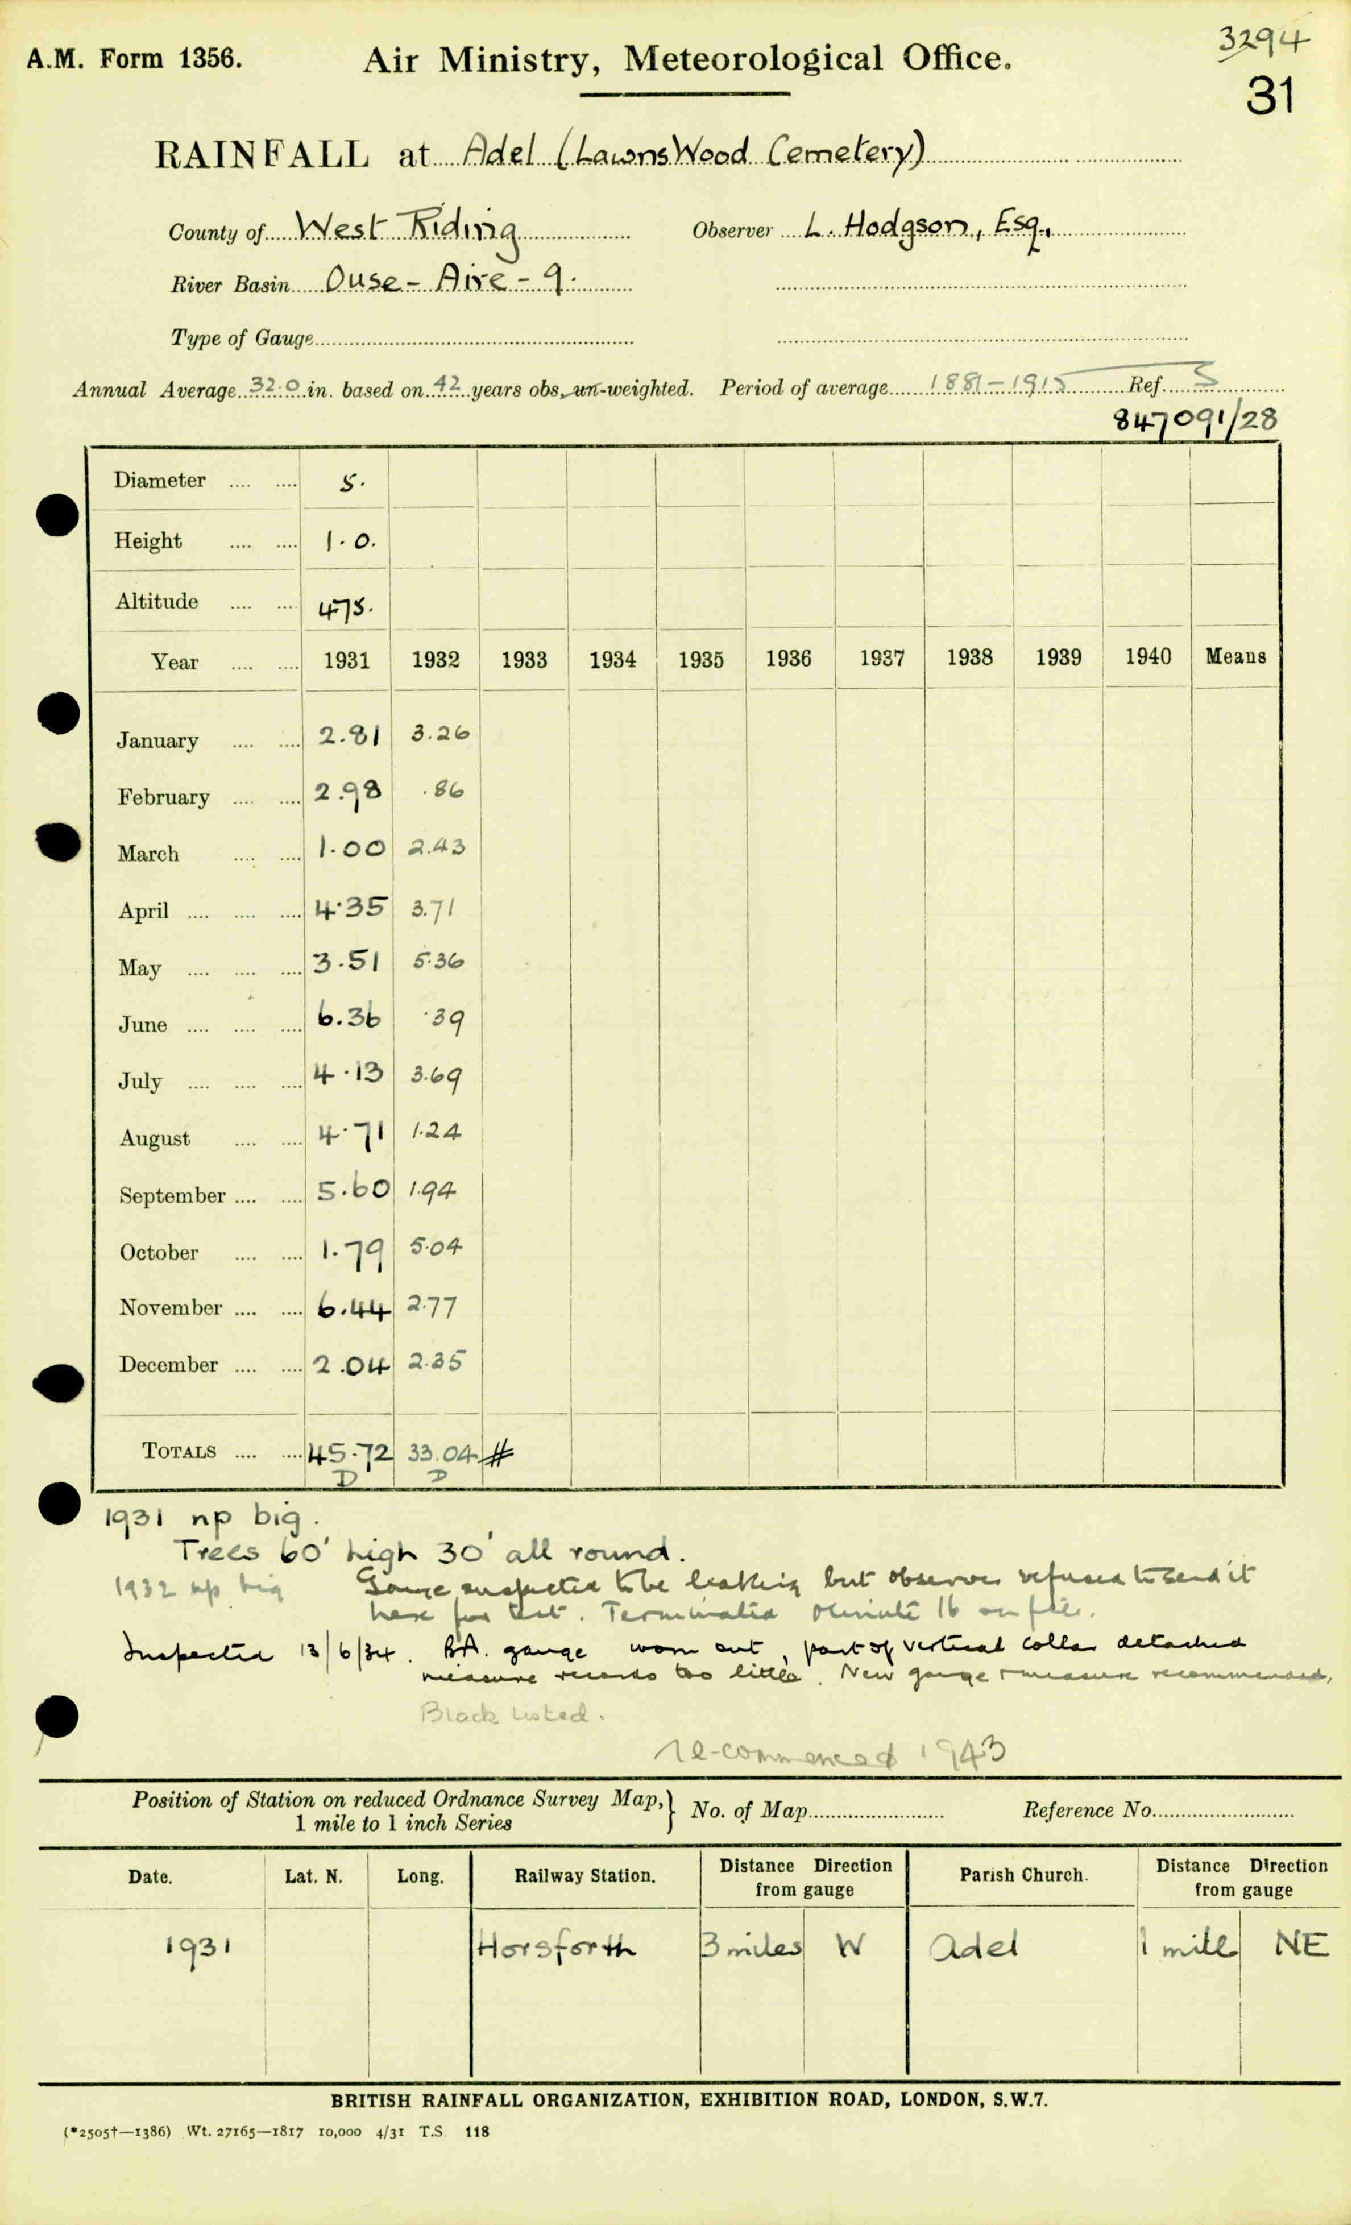 A.M. Form 1356.
Air Ministry, Meteorological Office.
3294
31
RAINFALL at Adel (LawnsWood Cemetery)
County of West Riding
Observer L. Hodgson, Esq.,
River Basin Ouse - Aire - 9.
Type of Gauge
Annual Average 32.0 in. based on 42 years obs. un-weighted. Period of average 1881-1915 Ref. S
847091/28
Diameter 5.
Height 1.0.
Altitude 475.
Year 1931 1932 1933 1934 1935 1936 1937 1938 1939 1940 Means
January 2.81 3.26
February 2.98 .86
March 1.00 2.43
April 4.35 3.71
May 3.51 5.36
June 6.36 .39
July 4.13 3.69
August 4.71 1.24
September 5.60 1.94
October 1.79 5.04
November 6.44 2.77
December 2.04 2.35
TOTALS 45.72 33.04 #
D D
1931 np big.
Trees 60' high 30' all round.
1932 np big Gauge suspected to be leaking but observer refused to send it
here for test. Terminated minute 16 on file.
Inspected 13/6/34. B.A. gauge worn out, part of vertical collar detached
measure records too little. New gauge + measure recommended.
Black Listed.
re-commenced 1943
Position of Station on reduced Ordnance Survey Map,} No. of Map Reference No.
1 mile to 1 inch Series
Date. Lat. N. Long. Railway Station. Distance Direction from gauge Parish Church. Distance Direction from gauge
1931 Horsforth 3 miles W Adel 1 mile NE
BRITISH RAINFALL ORGANIZATION, EXHIBITION ROAD, LONDON, S.W.7.
(*2505†—1386) Wt. 27165—1817 10,000 4/31 T.S. 118